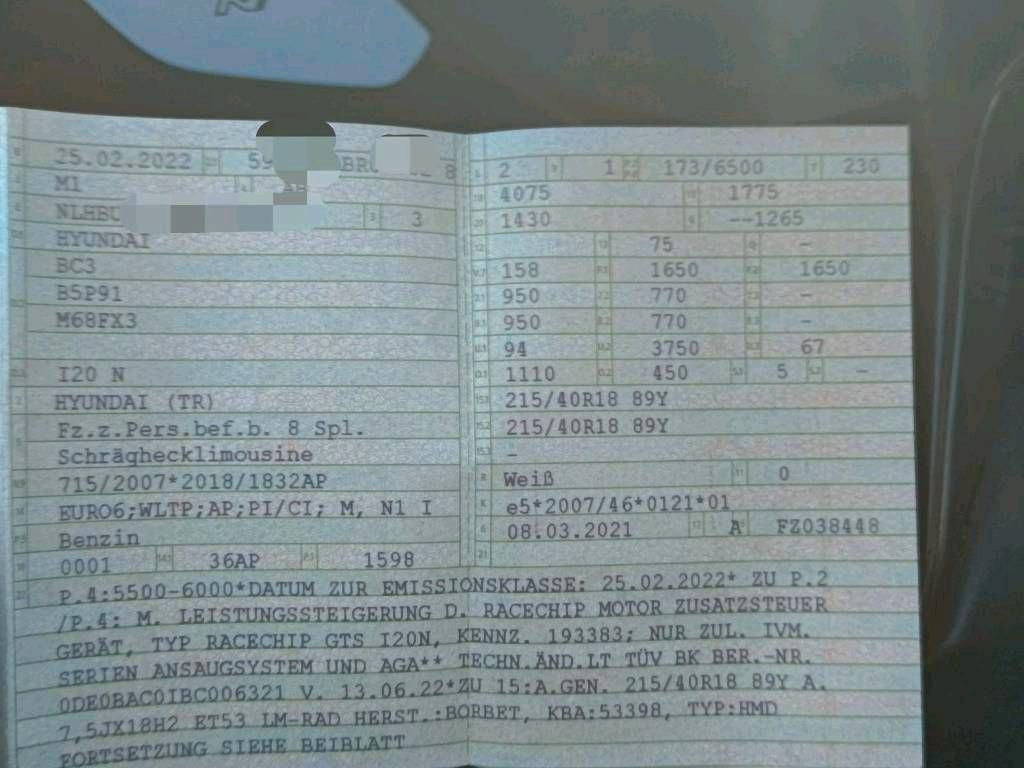 25.02.2022 8
M1
NLHBC 3
HYUNDAI
BC3
B5P91
M68FX3
I20 N
HYUNDAI (TR)
Fz.z.Pers.bef.b. 8 Spl.
Schräghecklimousine
715/2007*2018/1832AP
EURO6;WLTP;AP;PI/CI; M, N1 I
Benzin
0001 36AP 1598
2 1 173/6500 230
4075 1775
1430 --1265
75 -
158 1650 1650
950 770 -
950 770 -
94 3750 67
1110 450 5 -
215/40R18 89Y
215/40R18 89Y
-
Weiß 0
e5*2007/46*0121*01
08.03.2021 A FZ038448
P.4:5500-6000*DATUM ZUR EMISSIONSKLASSE: 25.02.2022* ZU P.2
/P.4: M. LEISTUNGSSTEIGERUNG D. RACECHIP MOTOR ZUSATZSTEUER
GERÄT, TYP RACECHIP GTS I20N, KENNZ. 193383; NUR ZUL. IVM.
SERIEN ANSAUGSYSTEM UND AGA** TECHN.ÄND.LT TÜV BK BER.-NR.
0DE0BAC0IBC006321 V. 13.06.22*ZU 15:A.GEN. 215/40R18 89Y A.
7,5JX18H2 ET53 LM-RAD HERST.:BORBET, KBA:53398, TYP:HMD
FORTSETZUNG SIEHE BEIBLATT